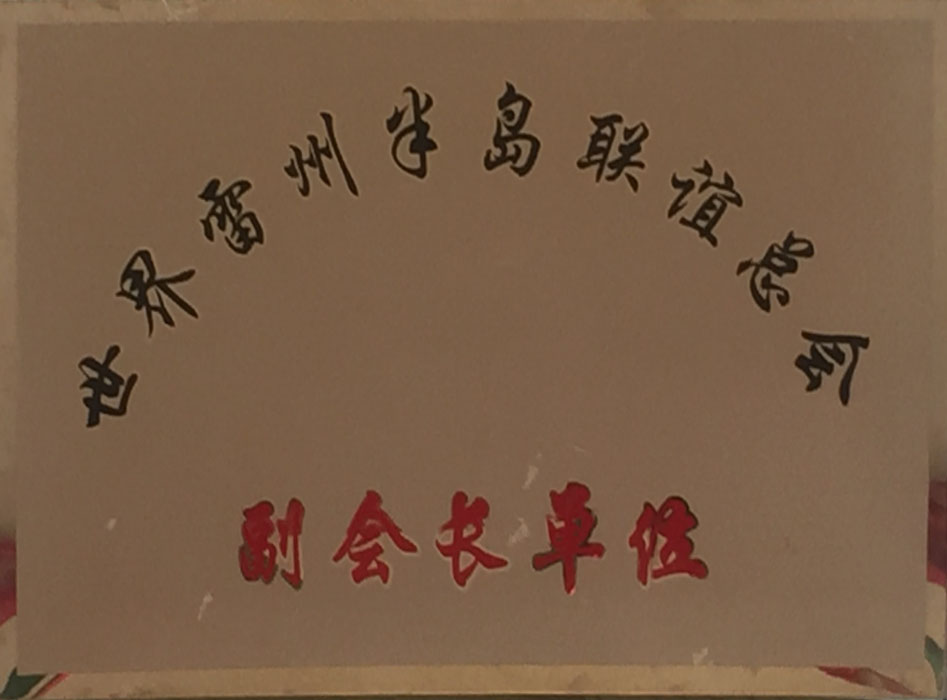 世界雷州半岛联谊总会
副会长单位